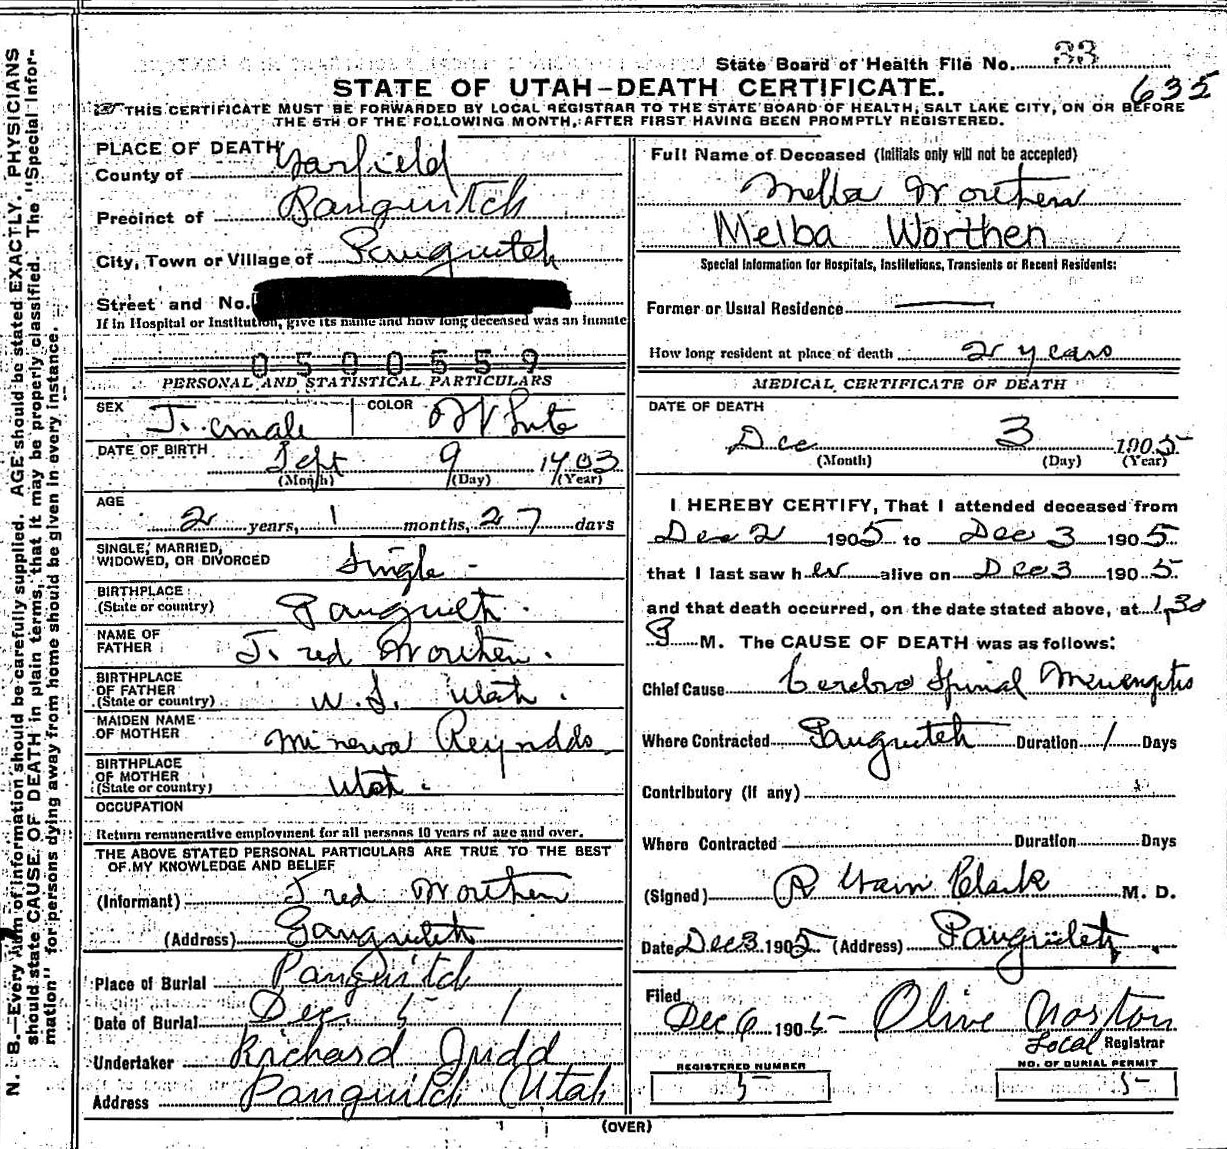 State Board of Health File No. 33
635
STATE OF UTAH–DEATH CERTIFICATE.
THIS CERTIFICATE MUST BE FORWARDED BY LOCAL REGISTRAR TO THE STATE BOARD OF HEALTH, SALT LAKE CITY, ON OR BEFORE
THE 5TH OF THE FOLLOWING MONTH, AFTER FIRST HAVING BEEN PROMPTLY REGISTERED.
PLACE OF DEATH
County of Garfield
Precinct of Panguitch
City, Town or Village of Panguitch
Street and No.
If in Hospital or Institution, give its name and how long deceased was an inmate
0500559
PERSONAL AND STATISTICAL PARTICULARS
SEX Female COLOR White
DATE OF BIRTH Sept 9 1903
(Month) (Day) (Year)
AGE
2 years, 1 months, 27 days
SINGLE, MARRIED,
WIDOWED, OR DIVORCED Single
BIRTHPLACE
(State or country) Panguitch
NAME OF
FATHER Fred Worthen.
BIRTHPLACE
OF FATHER
(State or country) U.S. Utah.
MAIDEN NAME
OF MOTHER Minerva Reynolds.
BIRTHPLACE
OF MOTHER
(State or country) Utah.
OCCUPATION
Return remunerative employment for all persons 10 years of age and over.
THE ABOVE STATED PERSONAL PARTICULARS ARE TRUE TO THE BEST
OF MY KNOWLEDGE AND BELIEF
(Informant) Fred Worthen
(Address) Panguitch
Place of Burial Panguitch
Date of Burial Dec 5
Undertaker Richard Judd
Address Panguitch Utah
Full Name of Deceased (Initials only will not be accepted)
Melba Worthen
Melba Worthen
Special Information for Hospitals, Institutions, Transients or Recent Residents:
Former or Usual Residence
How long resident at place of death 2 years
MEDICAL CERTIFICATE OF DEATH
DATE OF DEATH
Dec 3 1905
(Month) (Day) (Year)
I HEREBY CERTIFY, That I attended deceased from
Dec 2 1905 to Dec 3 1905
that I last saw her alive on Dec 3 1905
and that death occurred, on the date stated above, at 1,30
P M. The CAUSE OF DEATH was as follows:
Chief Cause Cerebro Spinal Menengitis
Where Contracted Panguitch Duration 1 Days
Contributory (if any)
Where Contracted Duration Days
(Signed) R Clark M. D.
Date Dec 3 1905 (Address) Panguitch
Filed
Dec 6 1905 Olive Norton
Local Registrar
REGISTERED NUMBER
5
NO. OF BURIAL PERMIT
5
(OVER)
N. B.—Every item of information should be carefully supplied. AGE should be stated EXACTLY. PHYSICIANS
should state CAUSE OF DEATH in plain terms, that it may be properly classified. The "Special Infor-
mation" for persons dying away from home should be given in every instance.